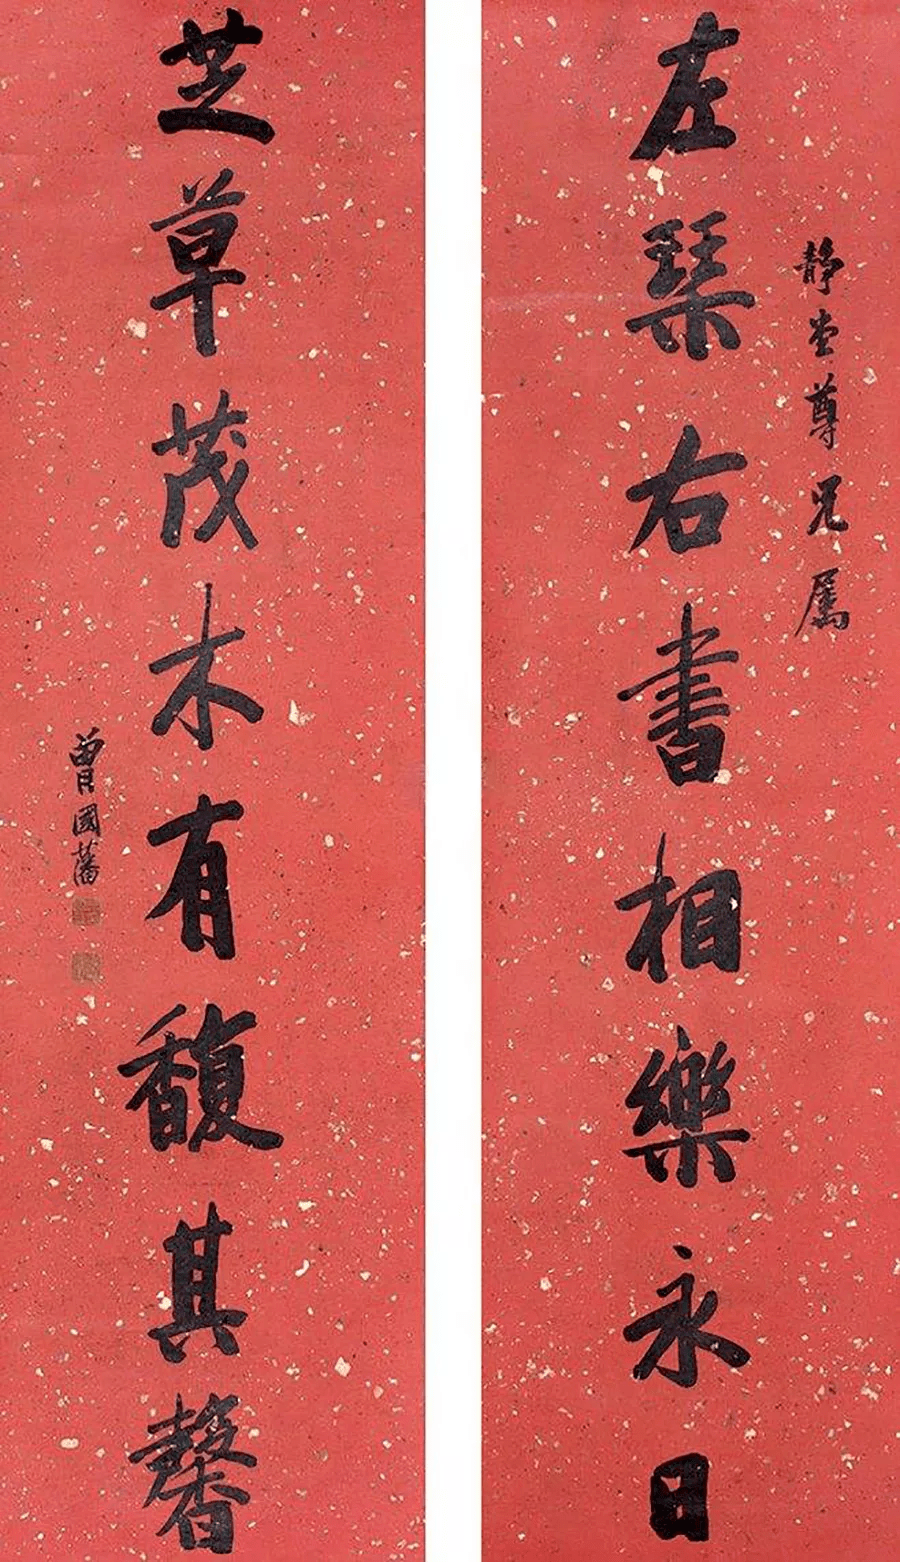 靜堂尊兄屬
左琹右書相樂永日
芝草茂木有馥其馨
曾國藩